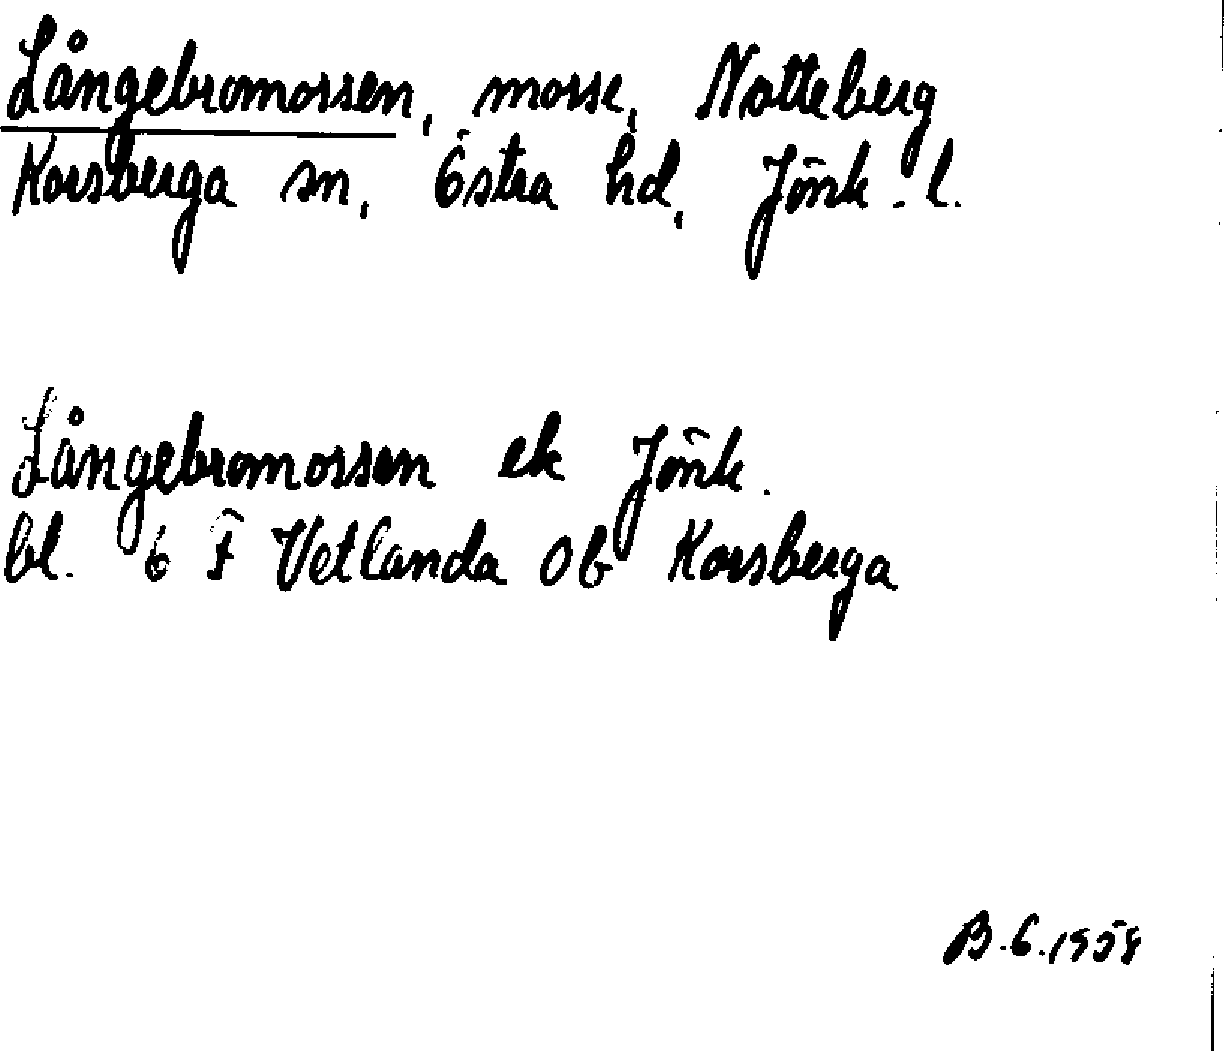 Långebromossen, mosse, Notteberg
Korsberga sn, Östra hd, Jönk. l.
Långebromossen ek Jönk.
bl. 6 F Vetlanda 0b Korsberga
B.G.1958